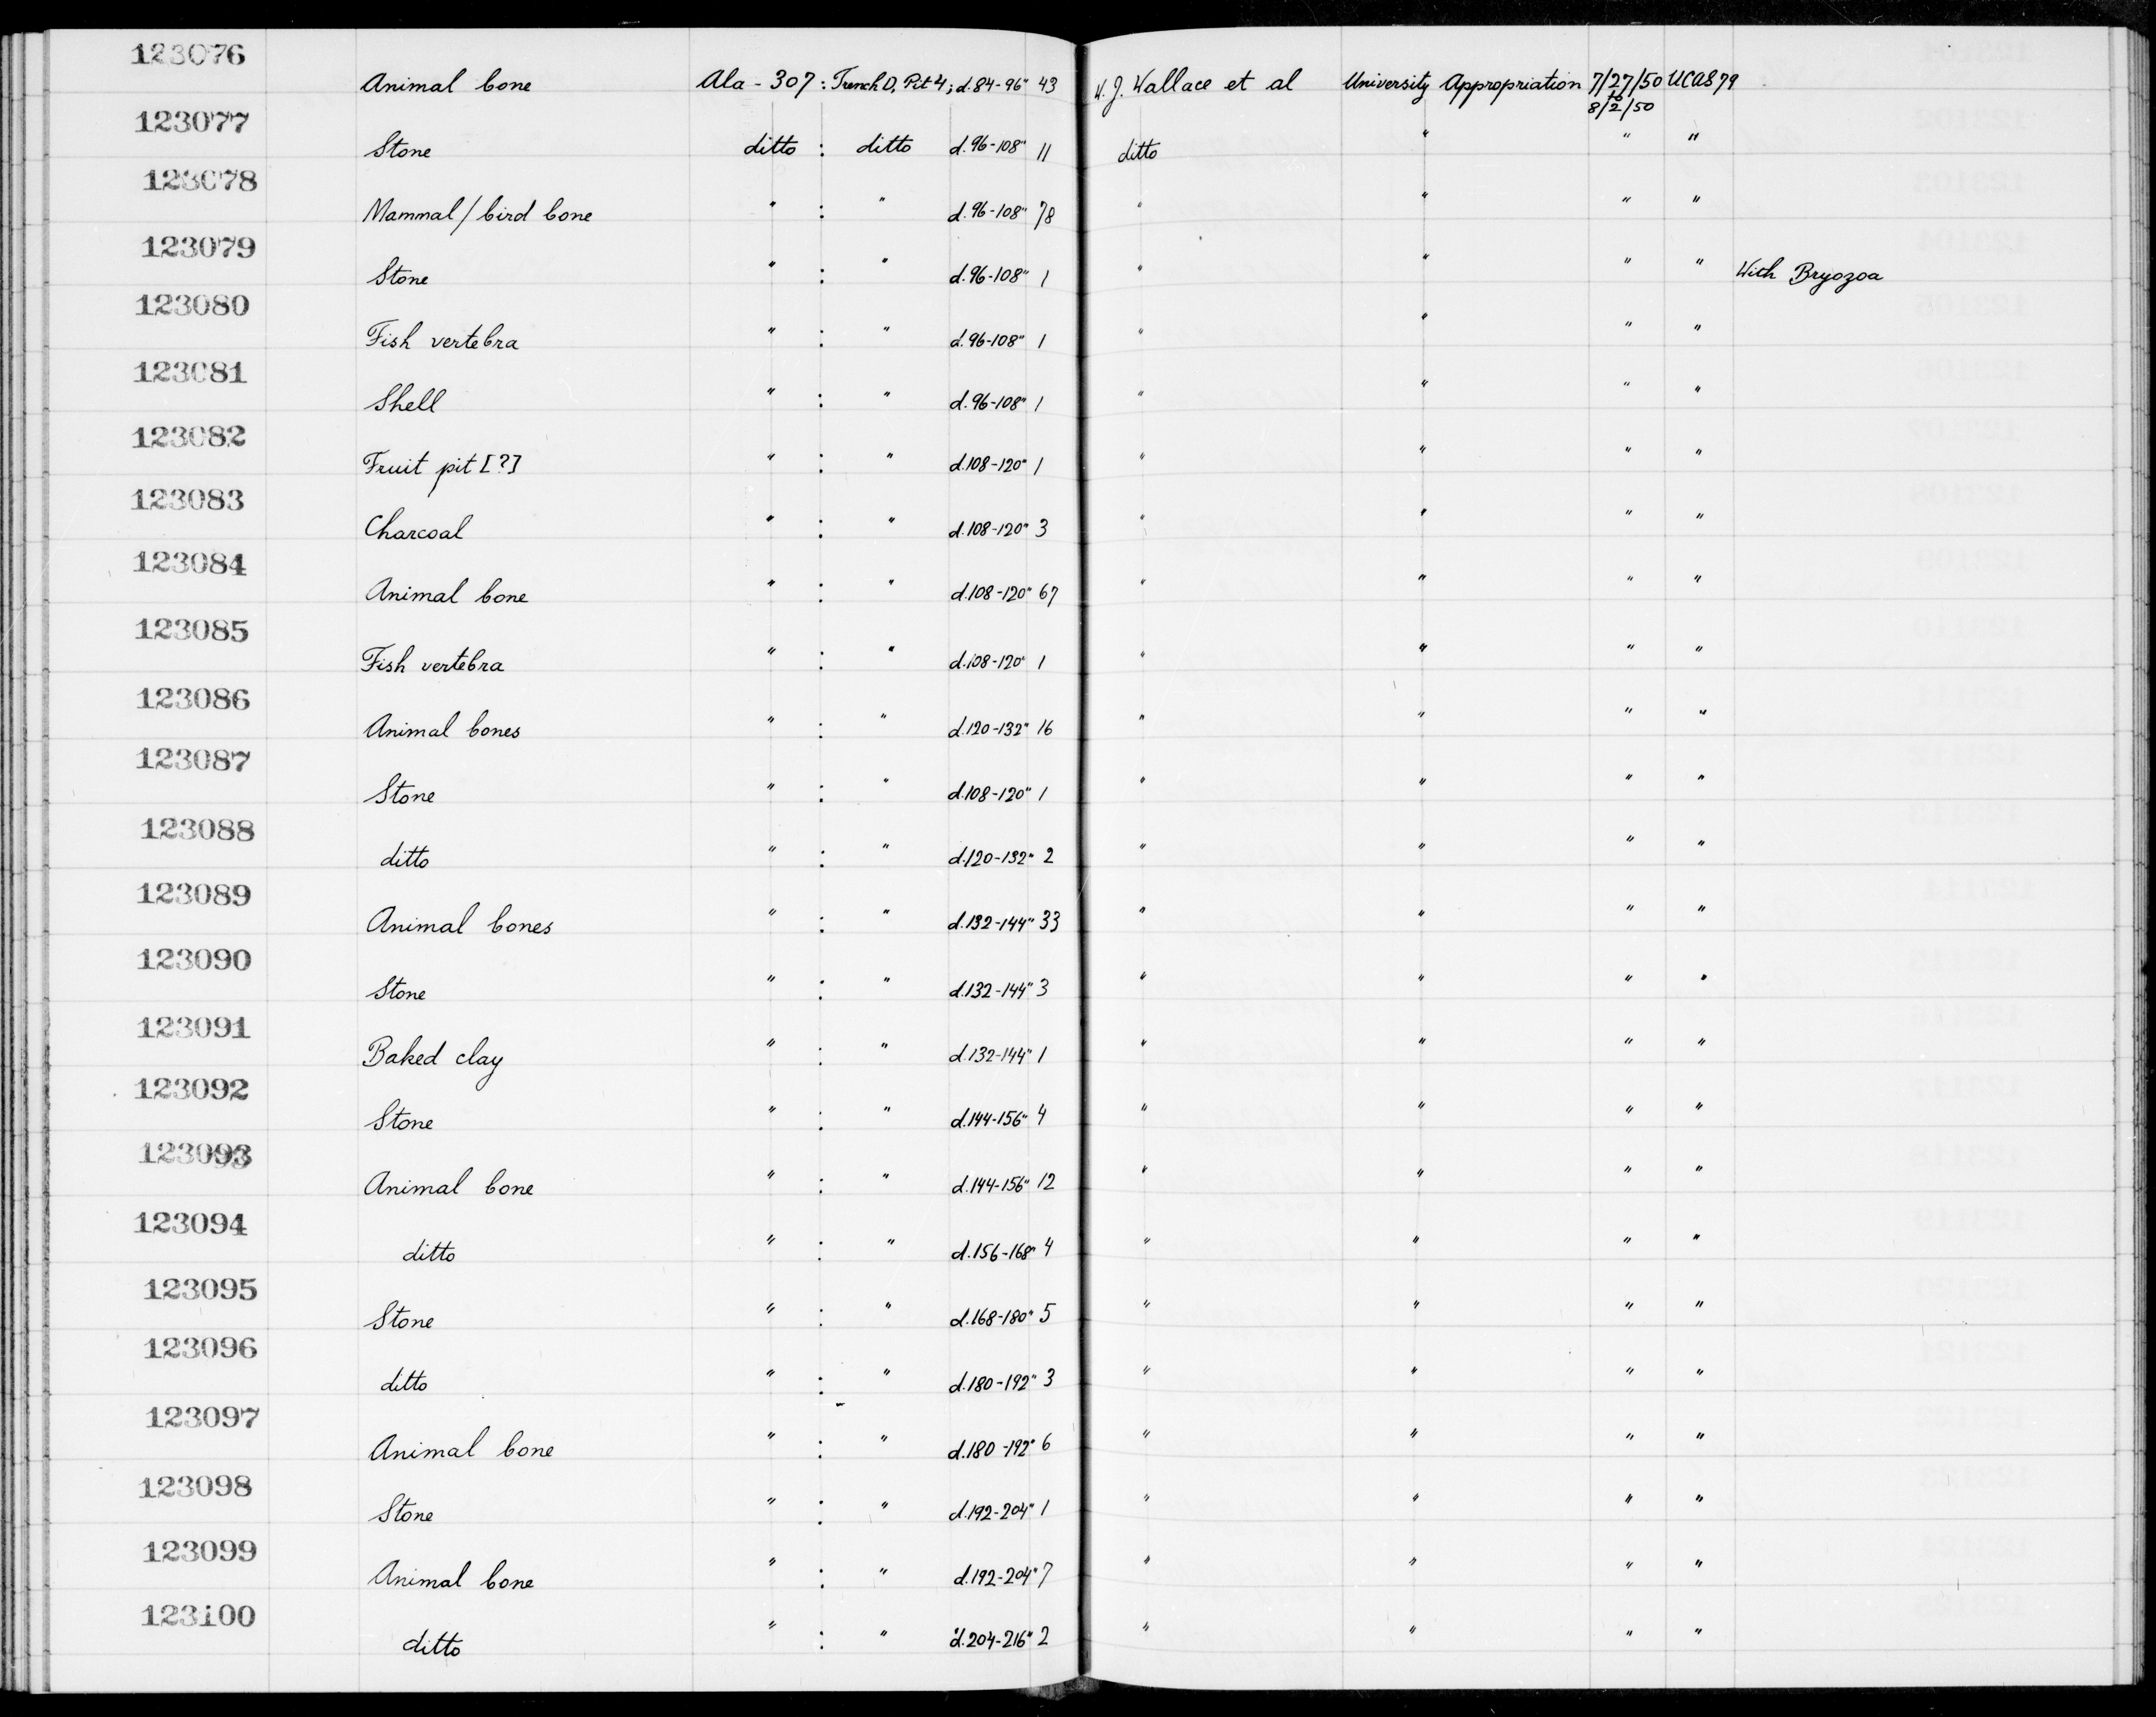 123076
Animal bone Ala - 307 : Trench D, Pit 4; d.84-96" 43 W. J. Wallace et al University Appropriation 7/27/50 UCAS 79
to
8/2/50
123077
Stone ditto : ditto d.96-108" 11 ditto " " "
123078
Mammal/bird bone " : " d.96-108" 78 " " " "
123079
Stone " : " d.96-108" 1 " " " " With Bryozoa
123080
Fish vertebra " : " d.96-108" 1 " " " "
123081
Shell " : " d.96-108" 1 " " " "
123082
Fruit pit [?] " : " d.108-120" 1 " " " "
123083
Charcoal " : " d.108-120" 3 " " " "
123084
Animal bone " : " d.108-120" 67 " " " "
123085
Fish vertebra " : " d.108-120" 1 " " " "
123086
Animal bones " : " d.120-132" 16 " " " "
123087
Stone " : " d.108-120" 1 " " " "
123088
ditto " : " d.120-132" 2 " " " "
123089
Animal bones " : " d.132-144" 33 " " " "
123090
Stone " : " d.132-144" 3 " " " "
123091
Baked clay " : " d.132-144" 1 " " " "
123092
Stone " : " d.144-156" 4 " " " "
123093
Animal bone " : " d.144-156" 12 " " " "
123094
ditto " : " d.156-168" 4 " " " "
123095
Stone " : " d.168-180" 5 " " " "
123096
ditto " : " d.180-192" 3 " " " "
123097
Animal bone " : " d.180-192" 6 " " " "
123098
Stone " : " d.192-204" 1 " " " "
123099
Animal bone " : " d.192-204" 7 " " " "
123100
ditto " : " d.204-216" 2 " " " "